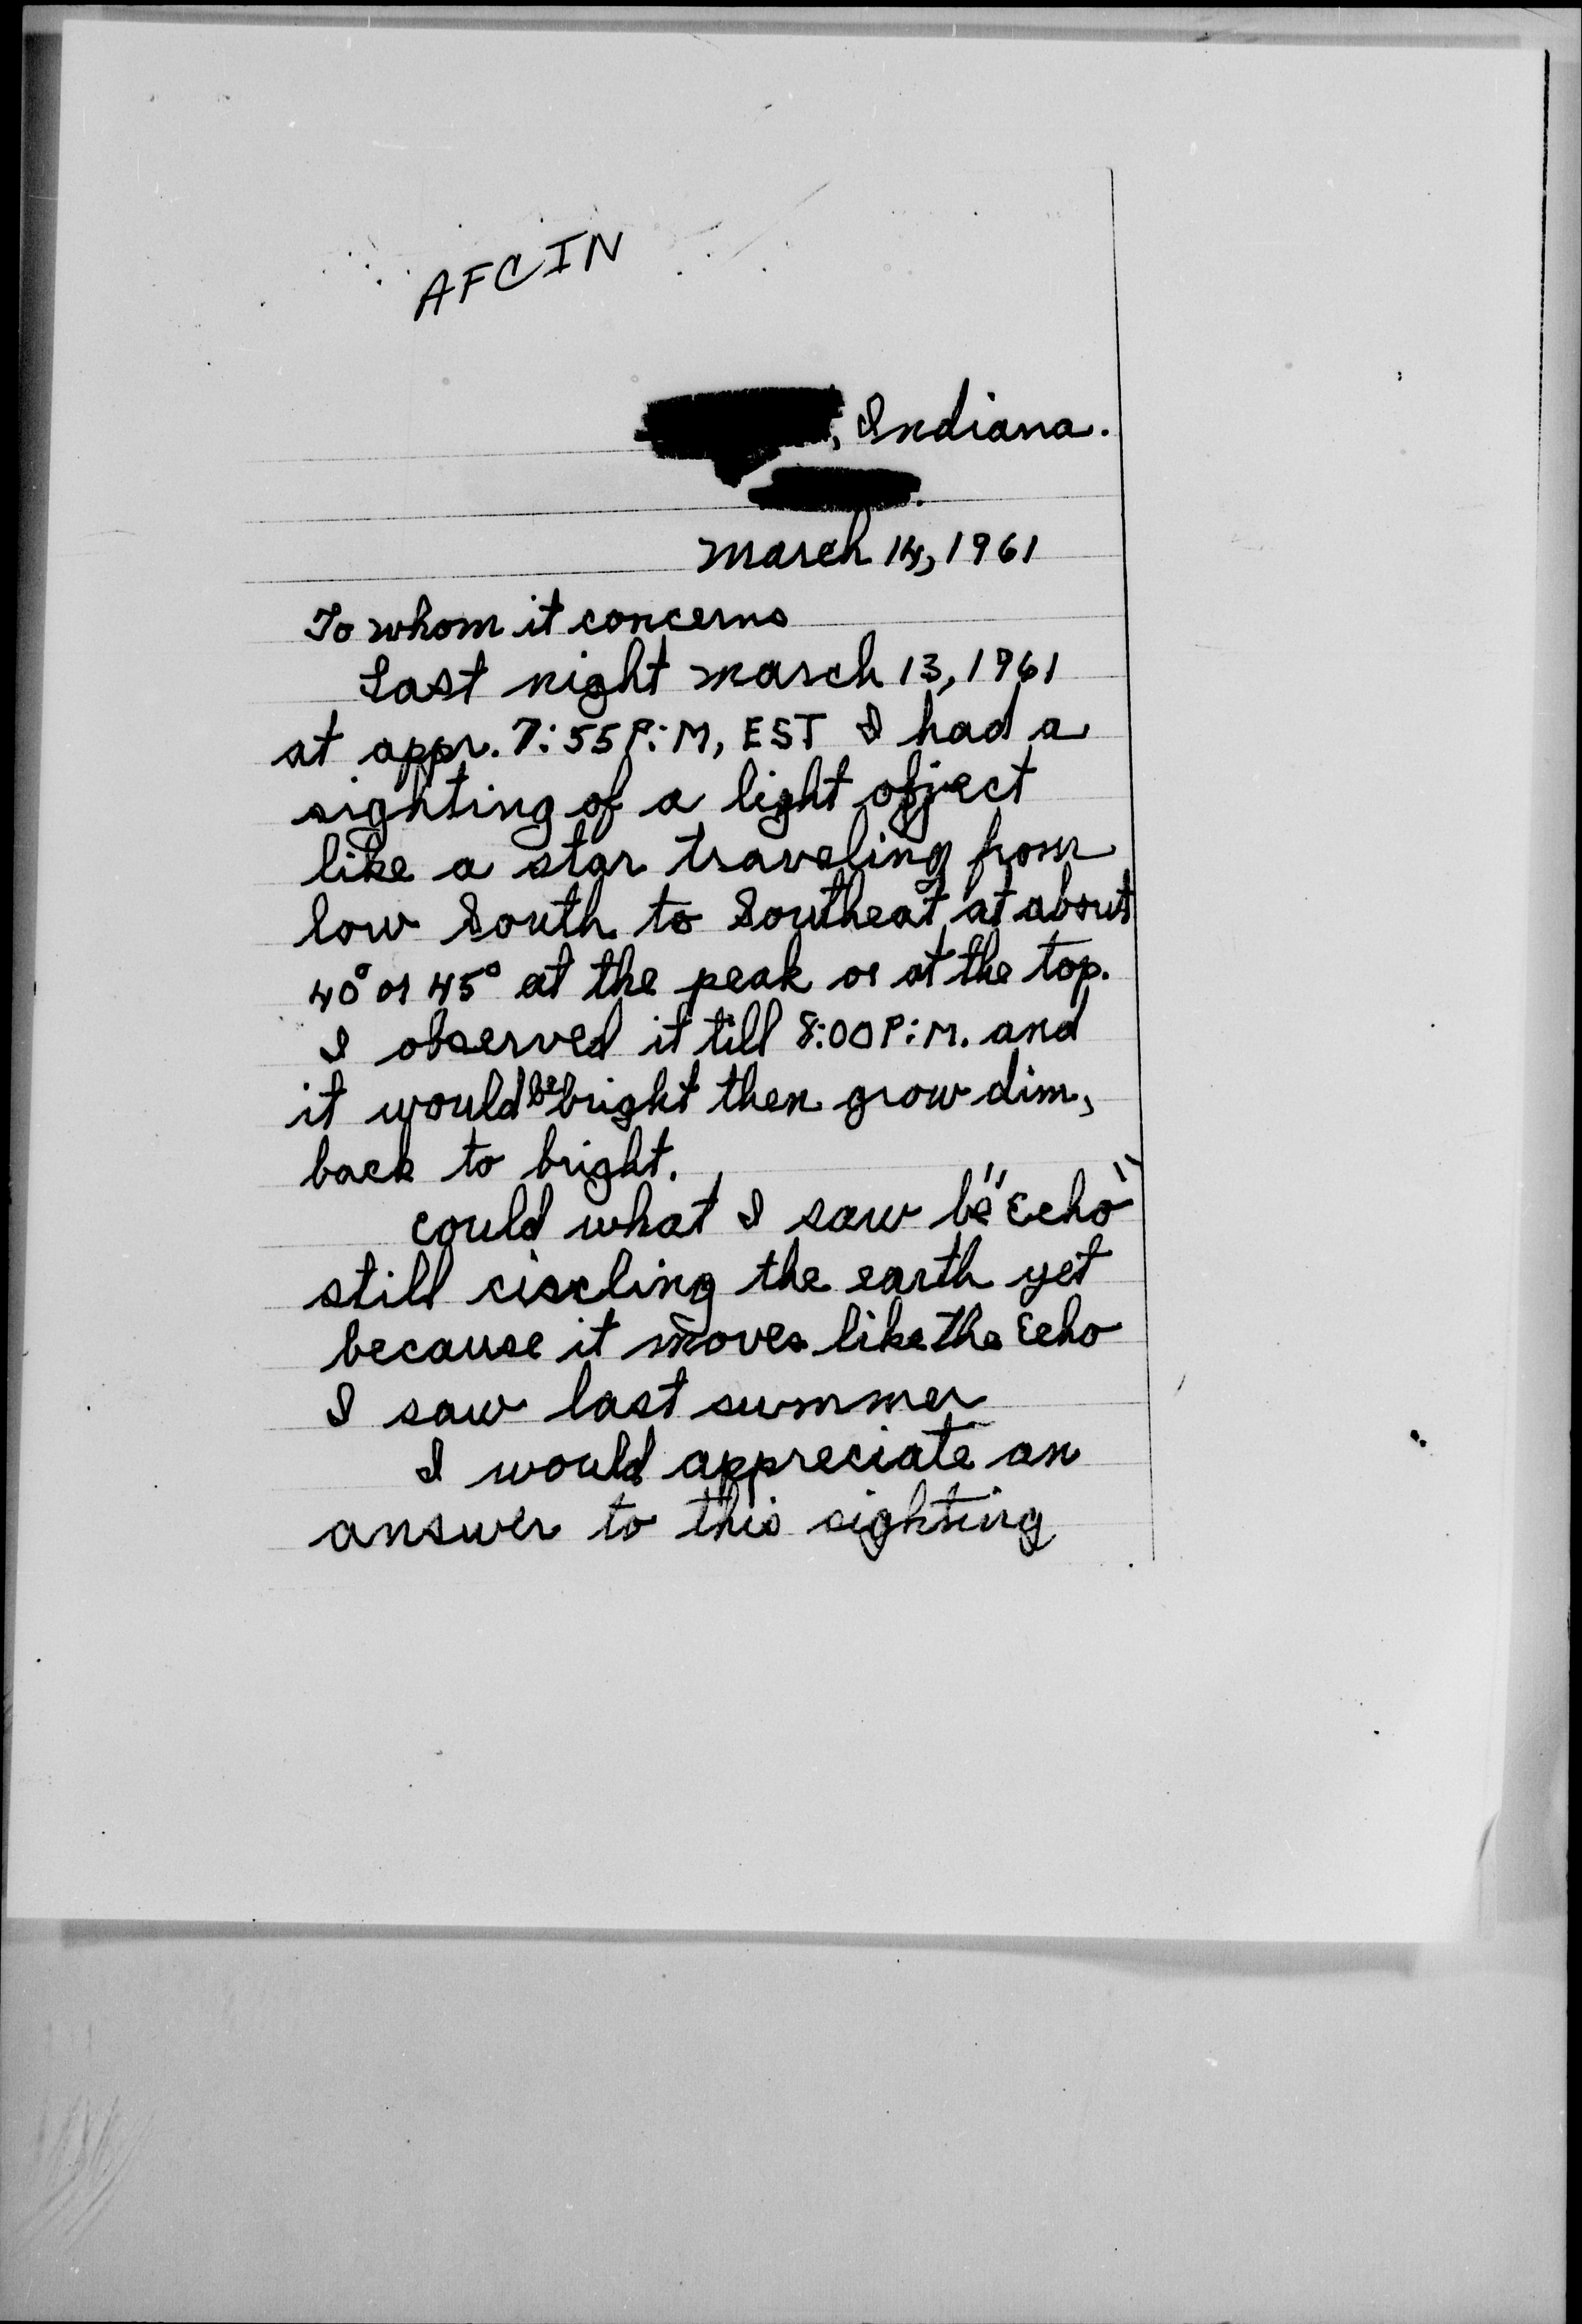 AFCIN
, Indiana.
March 14, 1961
To whom it concerns
Last night march 13, 1961
at appr. 7:55 P:M, EST I had a
sighting of a light object
like a star traveling from
low South to Southeat at about
40° or 45° at the peak or at the top.
I observed it till 8:00 P:M. and
it would be bright then grow dim,
back to bright.
could what I saw be "Echo"
still circling the earth yet
because it moves like the Echo
I saw last summer
I would appreciate an
answer to this sighting